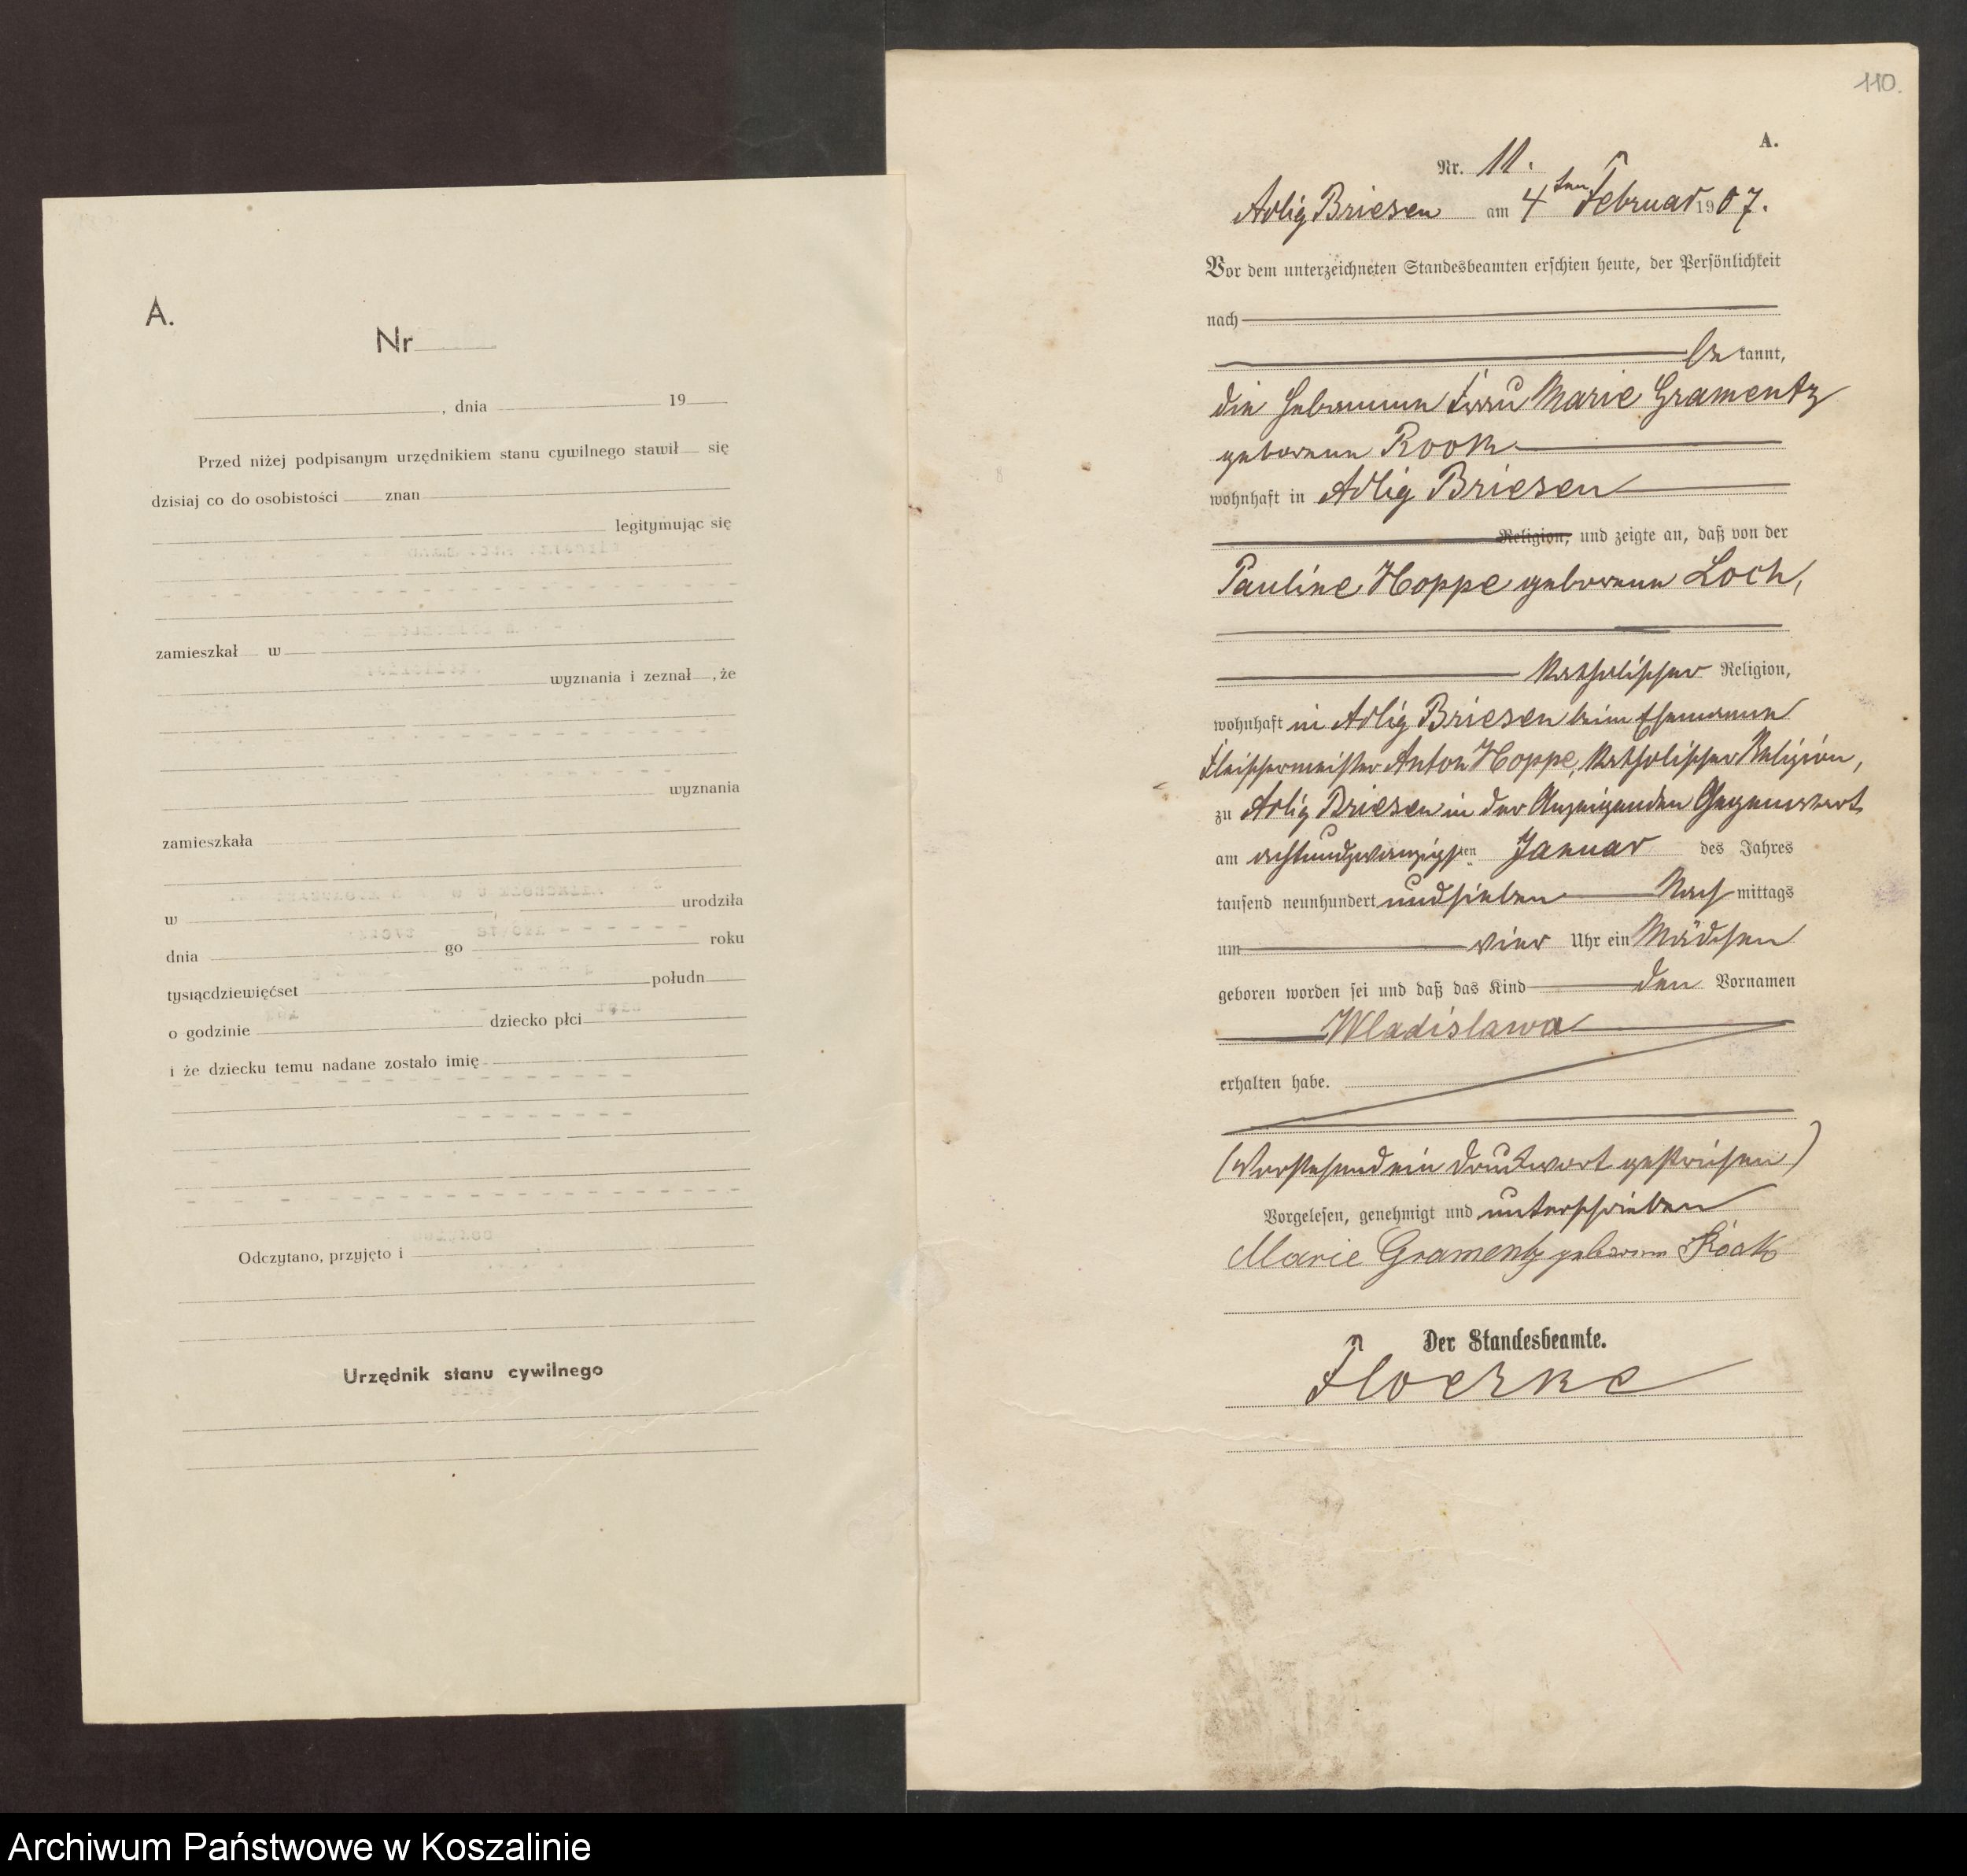 A.
Nr
, dnia 19
Przed niżej podpisanym urzędnikiem stanu cywilnego stawił się
dzisiaj co do osobistości znan
legitymując się
zamieszkał w
wyznania i zeznał , że
wyznania
zamieszkała
w , urodziła
dnia go roku
tysiącdziewięćset połudn
o godzinie dziecko płci
i że dziecku temu nadane zostało imię
Odczytano, przyjęto i
Urzędnik stanu cywilnego
110.
A.
Nr. 11.
Adlig Briesen am 4ten Februar 1907.
Vor dem unterzeichneten Standesbeamten erschien heute, der Persönlichkeit
nach
be kannt,
die Hebamme Frau Marie Gramentz
geborene Rook
wohnhaft in Adlig Briesen
Religion, und zeigte an, daß von der
Pauline Hoppe geborene Loch,
katholischer Religion,
wohnhaft in Adlig Briesen beim Ehemanne
Fleischermeister Anton Hoppe, katholischer Religion,
zu Adlig Briesen in der Anzeigenden Gegenwart
am achtundzwanzigsten Januar des Jahres
tausend neunhundert und sieben Nach mittags
um vier Uhr ein Mädchen
geboren worden sei und daß das Kind den Vornamen
Wladislawa
erhalten habe.
(Vorstehend ein Druckwort gestrichen)
Vorgelesen, genehmigt und unterschrieben
Marie Gramentz geborene Rook
Der Standesbeamte.
Floerke
Archiwum Państwowe w Koszalinie